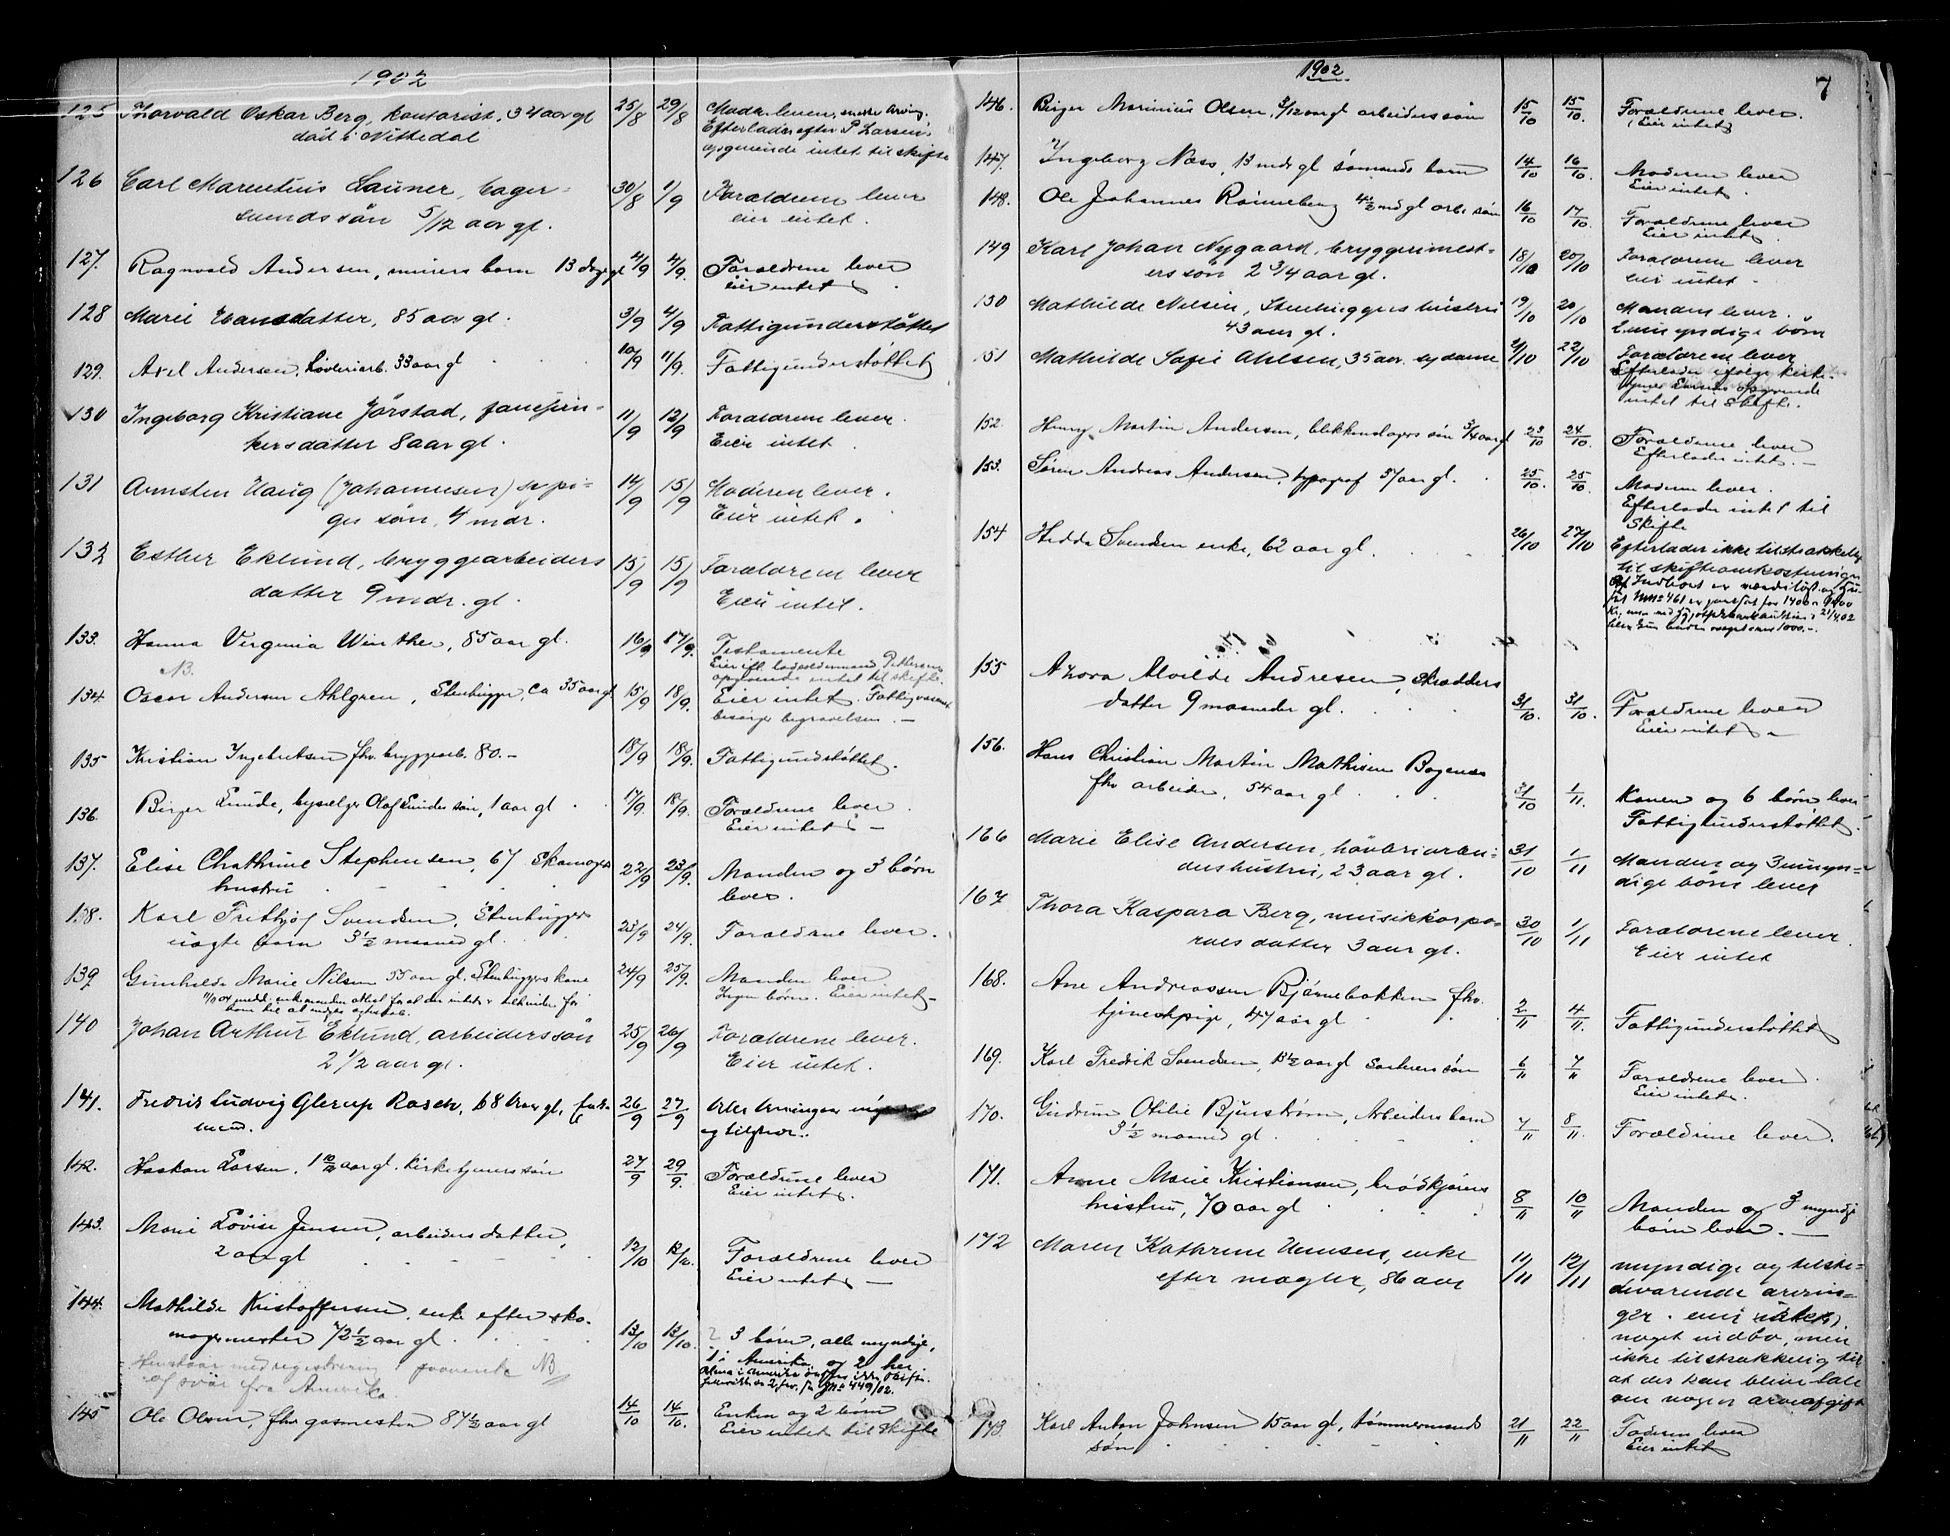 1902
125 Thorvald Oskar Berg, kontorist, 34 aar gl 25/8 29/8 Modr. lever,
død i Nittedal Efterlader efter P. Larsens
opgivende intet til skifte
126 Carl Marentius Launer, bager- 30/8 1/9 Forældrene lever
svendssøn 5/12 aar gl. eier intet.
127. Ragnvald Andersen, murers barn 13 dage gl 4/9 4/9. Forældrene lever
Eier intet.
128 Marie Hansdatter, 85 aar gl. 3/9 4/9 Fattigunderstøttet
129. Axel Andersen, høvleriarb. 33 aar gl 10/9 11/9. Fattigunderstøttet
130 Ingeborg Kristiane Jørstad, 11/9 12/9 Forældrene lever.
kersdatter 8 aar gl. Eier intet.
131 Arnsten Haug (Johannesen) sypi- 14/9 15/9 Moderen lever.
ges søn, 4 mdr. Eier intet.
132 Esther Eklund, bryggearbeiders 15/9 15/9 Forældrene lever
datter 9 mdr. gl. Eier intet.
133. Hanna Virginia Winther, 85 aar gl. 16/9 17/9. Testamente
NB. Eier ifl. Pettersens
opgivende intet til skifte.
134. Oscar Andersen Ahlgren, Stenhugger, ca 35 aar gl 15/9 18/9. Eier intet. Fattigvæsenet
besørger begravelsen. —
135 Kristian Ingebretsen fhv. bryggearb. 80.- 18/9 18/9. Fattigundstøttet.
136. Birger Lunde, byselger Olaf Lundes søn, 1 aar gl 17/9 18/9. Forældrene lever.
Eier intet. —
137. Elise Chathrine Stephensen, 67 Skomagers 22/9 23/9. Manden og 3 børn
hustru lever.
138. Karl Fritbjof Svendsen, Stenhuggers 23/9 24/9. Forældrene lever.
uægte barn 3½ maaned gl.
139. Gunhilda Marie Nilsen 55 aar gl. Stenhuggers kone 24/9 25/9. Manden lever
Ingen børn. Eier intet -
140 Johan Arthur Eklund, arbeiderssøn 25/9 26/9 Forældrene lever.
2 1/2 aar gl. Eier intet.
141. Fredrik Ludvig Glerup Rasch, 68 aar gl, 26/9 27/9 Alle Arvinger
og tilstede.
142. Haakon Larsen, 1 10/12 aar gl. kirketjeners søn 27/9 29/9. Forældrene lever
Eier intet.
143. Marie Lovise Jensen, arbeiders datter, 12/10 12/10. Forældrene lever
2 aar gl Eier intet —
144. Mathilde Kristoffersen, enke efter sko- 13/10 13/10. ? 3 børn, alle myndige,
magermester 72½ aar gl. 1 i Amerika og 2 her
Henstaar med registrering, paavente NB
af svar fra Amerika.
145 Ole Olsen, fhv. gasmester 87½ aar gl 14/10 14/10. Enken og 2 børn
Eier intet til skifte
1902
7
146. Birger Marinius Olsen, 3/12 aar gl arbeiderssøn 15/10 15/10. Forældrene lever.
Eier intet
147. Ingeborg Næss, 13 mdr gl sømands barn 14/10 16/10. Moderen lever
Eier intet.
148. Ole Johannes Rønneberg 4½ md gl arb. søn 16/10 17/10. Forældrene lever
Eier intet.
149 Karl Johan Nygaard, bryggerimest- 18/10 20/10 Forældrene lever
ers søn 2 3/4 aar gl. eier intet.
150 Mathilde Nilsen, Stenhuggers hustru 19/10 20/10 Manden lever.
43 aar gl. umyndige børn
151 Mathilde Sofie Ahlsen, 35 aar. sydame 21/10 22/10 Forældrene lever
Efterlader ifølge kirke-
opgivende
intet til skifte.
152. Henry Martin Andersen, blikkenslagers søn 3/4 aar gl 23/10 24/10. Forældrene lever
Efterlader intet. —
153. Søren Andreas Andersen, typograf 37 aar gl. 25/10. 25/10. Moderen lever.
Efterlader intet til
Skifte
154 Hedda Svendsen enke, 62 aar gl. 26/10 27/10 Efterlader ikke tilstrækkelig
til skifteomkostninger
155 Thora Alvilde Andresen, skredders
datter 9 maaneder gl. 31/10. 31/10. Forældrene lever
Eier intet. -
156. Hans Christian Martin Mathisen Bogenes
fhv arbeider, 54 aar gl. 31/10 1/11. Konen og 6 børn lever
Fattigunderstøttet.
166 Marie Elise Andersen, høvleriarbei- 31/10 1/11 Manden og 3 umyn-
dershustru, 23 aar gl. dige børn lever
167 Thora Kaspara Berg, musikkorpo- 30/10 1/11 Forældrene lever.
rals datter 3 aar gl. Eier intet
168. Ane Andreassen Bjørnebakken fhv.
tjenestepige, 47 aar gl 2/11 4/11. Fattigunderstøttet
169. Karl Fredrik Svendsen, 1½ aar gl 6/11 7/11 Forældrene lever.
Eier intet.
170. Gudrun Otilie Bjurstrøm, Arbeiders barn 7/11 8/11. Forældrene lever.
3½ maaned gl.
171. Anne Marie Kristiansen, brødkjørers 8/11 10/11 Manden og 3 myndige
hustru, 70 aar gl børn lever. —
172 Maren Kathrine Unnsen, enke 11/11 12/11 myndige og tilste-
efter mægler, 86 aar deværende arvin-
ger. eier
noget indbo, men
ikke tilstrækkelig til
at der kan blive tale
om nogen arveafgift
173. Karl Anton Johnsen 15 aar gl, tømmermands 21/11 22/11 Faderen lever
søn Eier intet